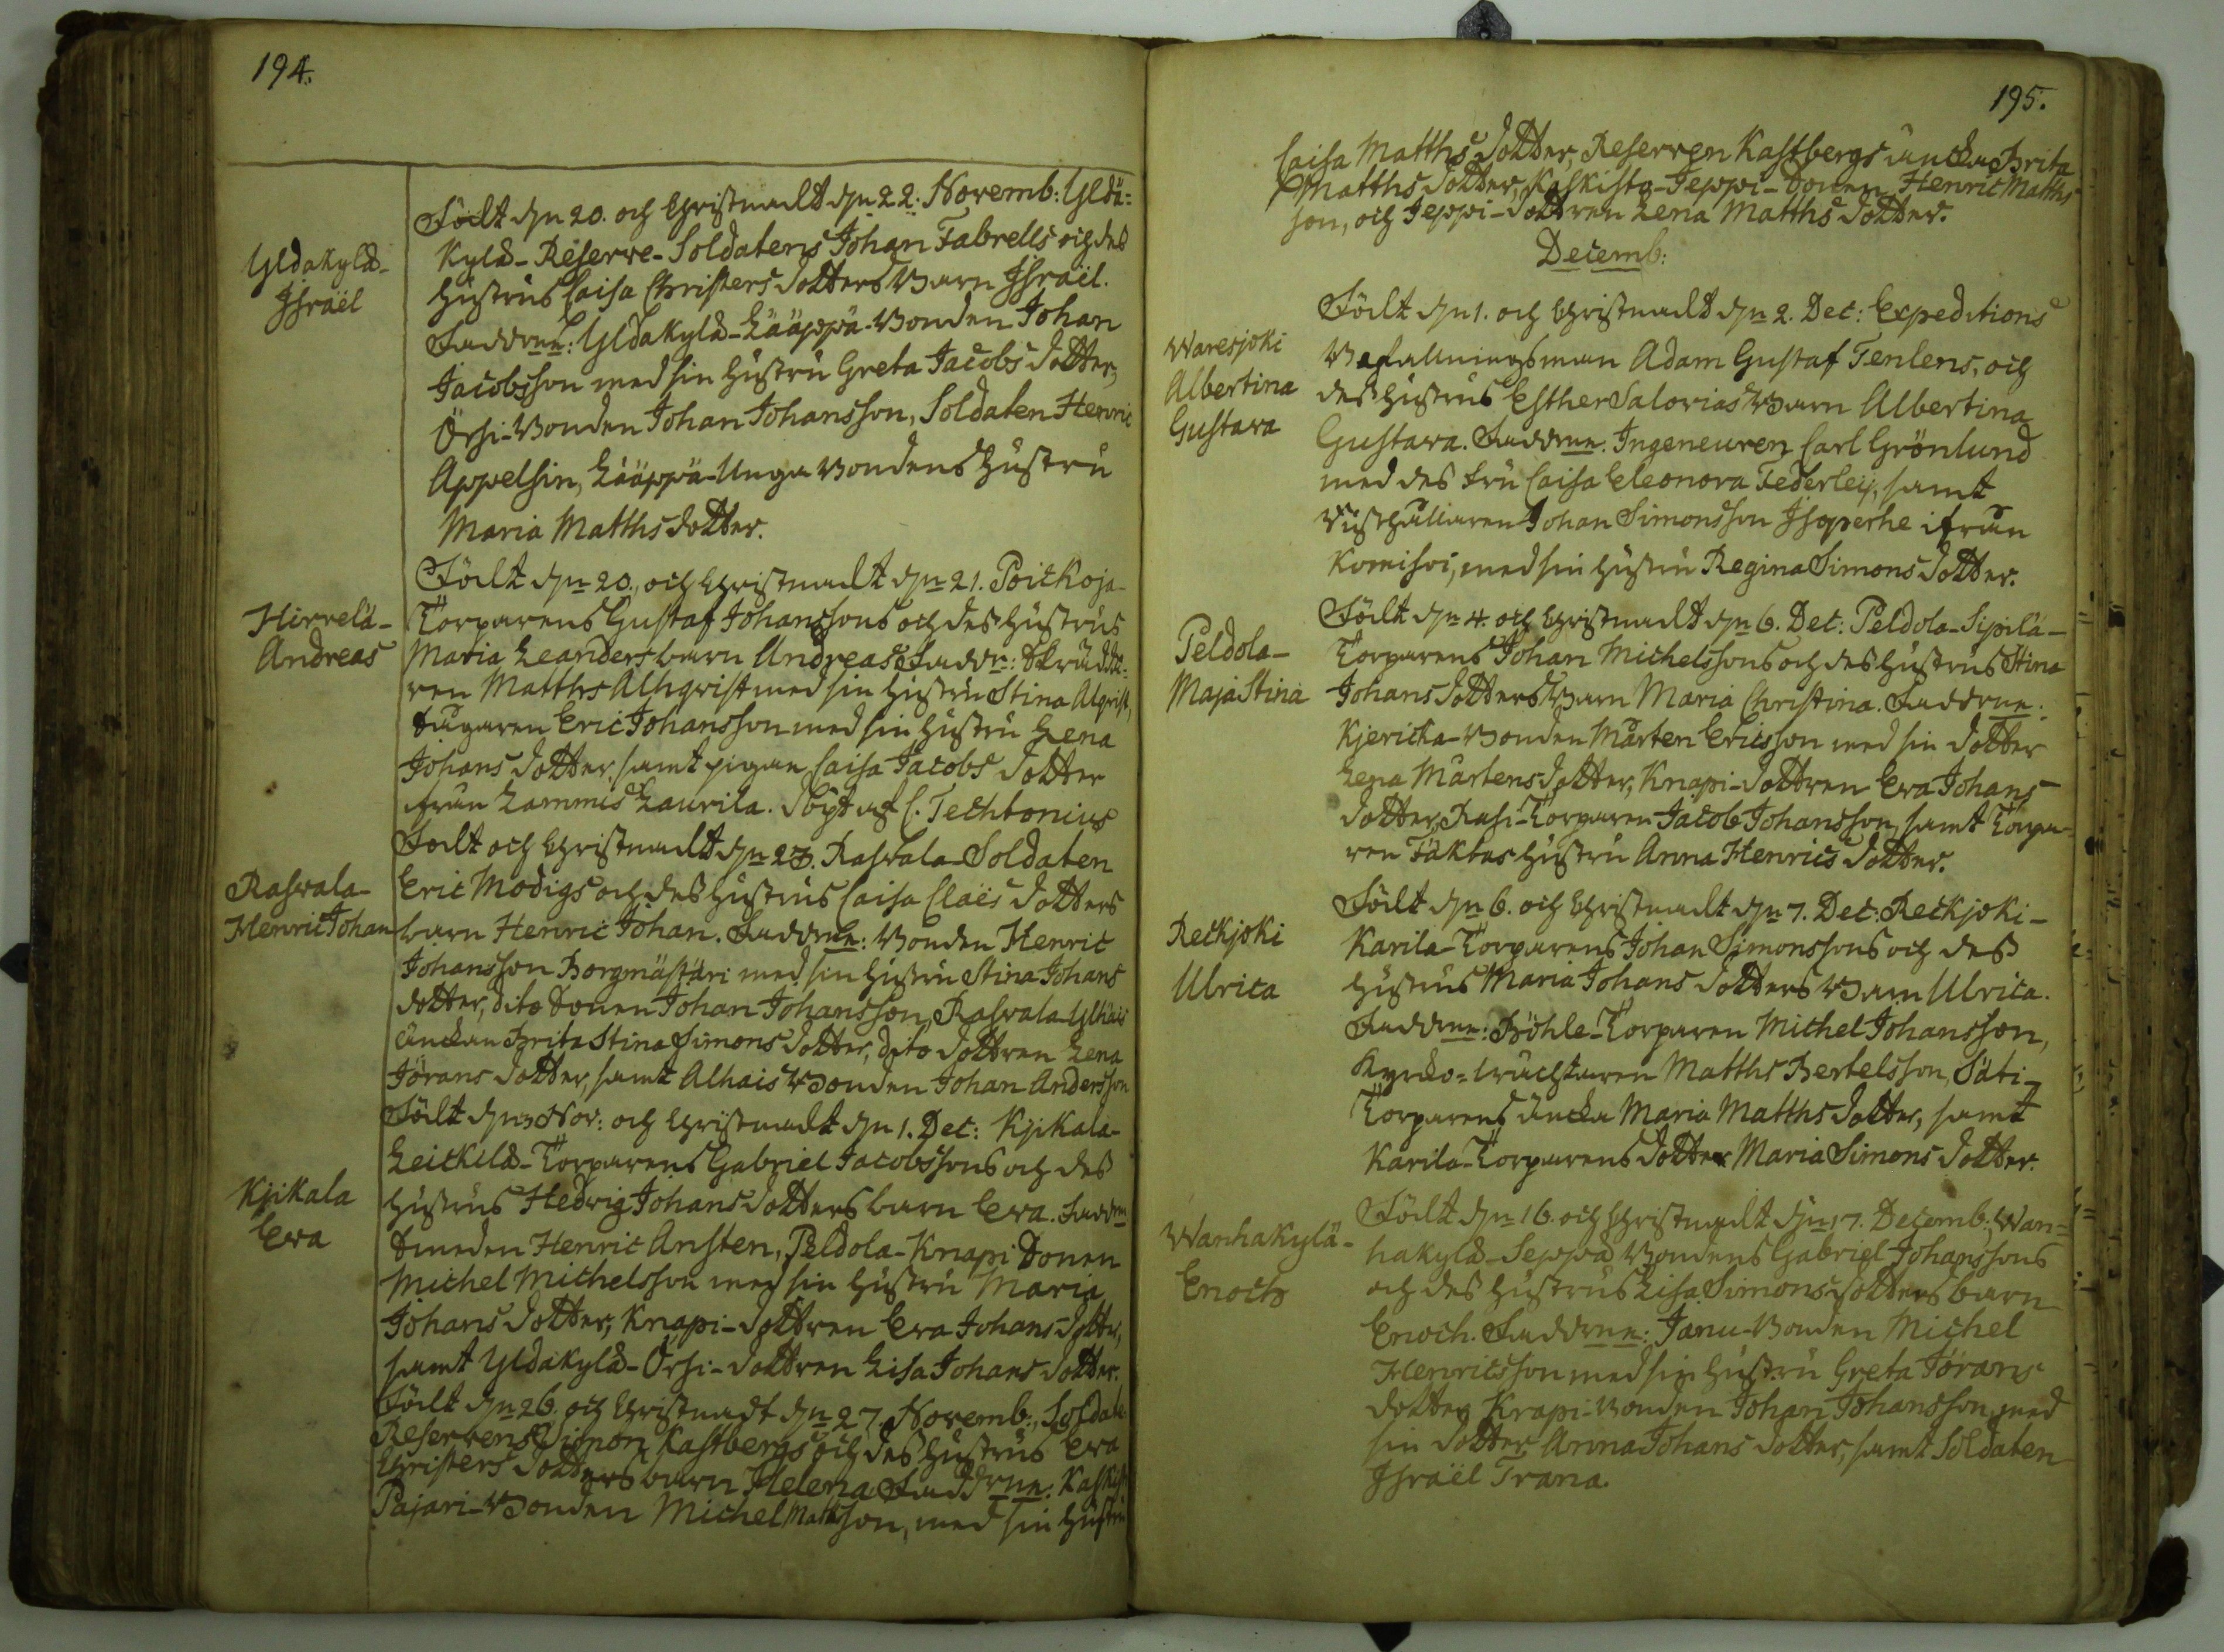 194.
Födt d/n 20. och Christnadt d/n 22. Novemb: Yldä-
Yldäkylä-
Israël
kylä-Reserve-Soldatens Johan Fabrells och des
hustrus Caisa Christers dotters Barn Israël.
Faddrne: Yldäkylä-Lääppä-Bonden Johan
Jacobsson med sin hustru Greta Jacobs dotter,
Örsi-Bonden Johan Johansson, Soldaten Henric
Appelsin, Lääppä-Unga Bondens hustru
Maria Matths dotter.
Födt d/n 20. och Christnadt d/n 21. Poickoja-
Hirvelä-
Andreas
Torparens Gustaf Johanssons och des hustrus
Maria Leanders barn Andreas. Faddr: Skrädda-
ren Matths Alhqvist med sin hustru Stina Alqvist,
Sugaren Eric Johansson med sin hustru Lena
Johans dotter, samt pigan Caisa Jacobs dotter
från Lammis Laurila. Döpt af C. Techtonius
Födt och Christnadt d/n 23. Rasvala-Soldaten
Rasvala-
Henric Johan
Eric Modigs och des hustrus Caisa Claës dotters
barn Henric Johan. Faddrne: Bonden Henric
Johansson Borgmästäri med sin hustru Stina Johans
dotter, dito Sonen Johan Johansson, Rasvala
änckan Brita Stina Simons dotter, dito dottren Lena
Jörans dotter, samt Alhais Bonden Johan Andersson
Födt d/n Nov: och Christnadt d/n 1. Dec: Kjikala-
Kjikala
Eva
Leickilä-Torparens Gabriel Jacobssons och des
hustrus Hedvig Johans dotters barn Eva. Faddrn
Smeden Henric Ansten, Peldola-Knapi Sonen
Michel Michelsson med sin hustru Maria
Johans dotter, Knapi-dottren Eva Johans dotter,
samt Yldäkylä-Örsi-dottren Lisa Johans dotter.
Födt d/n 26. och Christnadt d/n 27. Novemb:, Soldate
Reservens Simon Kastbergs och des hustrus Eva
Christers dotters barn Helena. Faddrne: Kaskist
Pajari-Bonden Michel Mattsson, med sin hustru
195.
Caisa Matths dotter, Reserven Kastbergs äncka Brita
Matths dotter, Kaskista-Jeppi-Sonen Henric Matths
son, och Jeppi-dottren Lena Matths dotter.
Decemb:
Födt d/n 1. och Christnadt d/n 2. Dec: Expeditions
Waresjoki
Albertina
Gustava
Befallningsman Adam Gustaf Tenlens, och
des hustrus Esther Salovias Barn Albertina
Gustava. Faddrne. Ingeneuren Carl Grönlund
med des fru Caisa Eleonora Federley, samt
Johan Simonsson Isoperhe ifrån
Komisvi, med sin hustru Regina Simons dotter.
Födt d/n 4. och Christnadt d/n 6. Dec: Peldola-Sipilä-
Peldola-
Maja Stina
Torparens Johan Michelssons och des hustrus Stina
Johans dotters Barn Maria Christina. Faddrne:
Kjericka-Bonden Mårten Ericsson med sin dotter
Lena Mårtens dotter, Knapi-dottren Eva Johans
dotter, Rasi-Torparen Jacob Johansson, samt Torpa-
ren Fäktas hustru Anna Henrics dotter.
Födt d/n 6. och Christnadt d/n 7. Dec: Reckjoki-
Reckjoki
Ulrica
Karila-Torparens Johan Simonssons och des
hustrus Maria Johans dotters Barn Ulrica.
Faddrne: Böhle-Torparen Michel Johansson,
Kyrcko-wäcktaren Matths Bertelsson, Säti-
Torparens äncka Maria Matths dotter, samt
Karila-Torparens dotter Maria Simons dotter.
Födt d/n 16. och Christnadt d/n 17. Decemb:, Wan-
Wanhakylä-
Enoch
hakylä-Seppä Bondens Gabriel Johanssons
och des hustrus Lisa Simons dotters barn
Enoch. Faddrne: Janu-Bonden Michel
Henricsson med sin hustru Greta Jörans
dotter, Knapi-Bonden Johan Johansson, med
sin dotter Anna Johans dotter, samt Soldaten
Israël Trana.